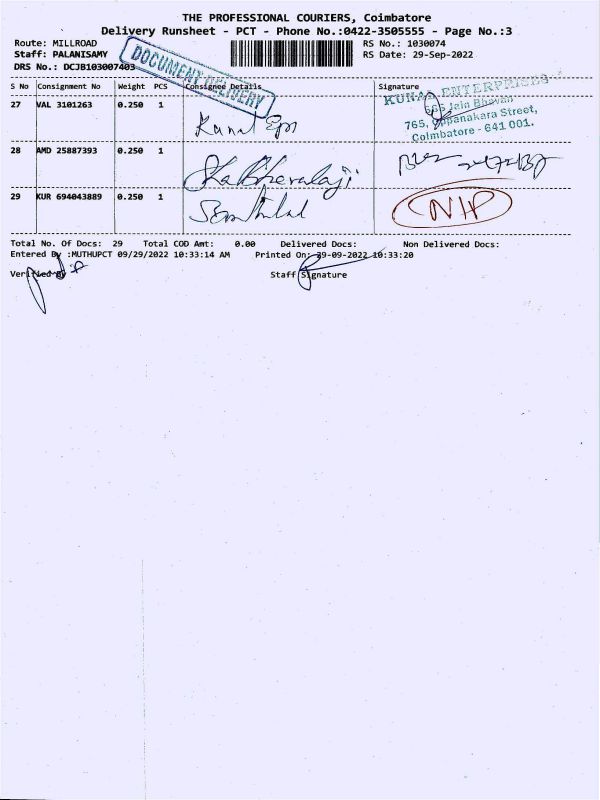 THE PROFESSIONAL COURIERS, Coimbatore
Delivery Runsheet - PCT - Phone No.:0422-3505555 - Page No.:3
Route: MILLROAD
Staff: PALANISAMY
DRS No.: DCJB103007403
DOCUMENT DELIVERY
RS No.: 1030074
RS Date: 29-Sep-2022
S No Consignment No Weight PCS Consignee Details Signature
27 VAL 3101263 0.250 1
KUNAL ENTERPRISES
Jain Bhavan
765, Oppanakara Street,
Coimbatore - 641 001.
28 AMD 25887393 0.250 1
29 KUR 694043889 0.250 1
NIP
Total No. Of Docs: 29 Total COD Amt: 0.00 Delivered Docs: Non Delivered Docs:
Entered By :MUTHUPCT 09/29/2022 10:33:14 AM Printed On: 29-09-2022 10:33:20
Verified By Staff Signature